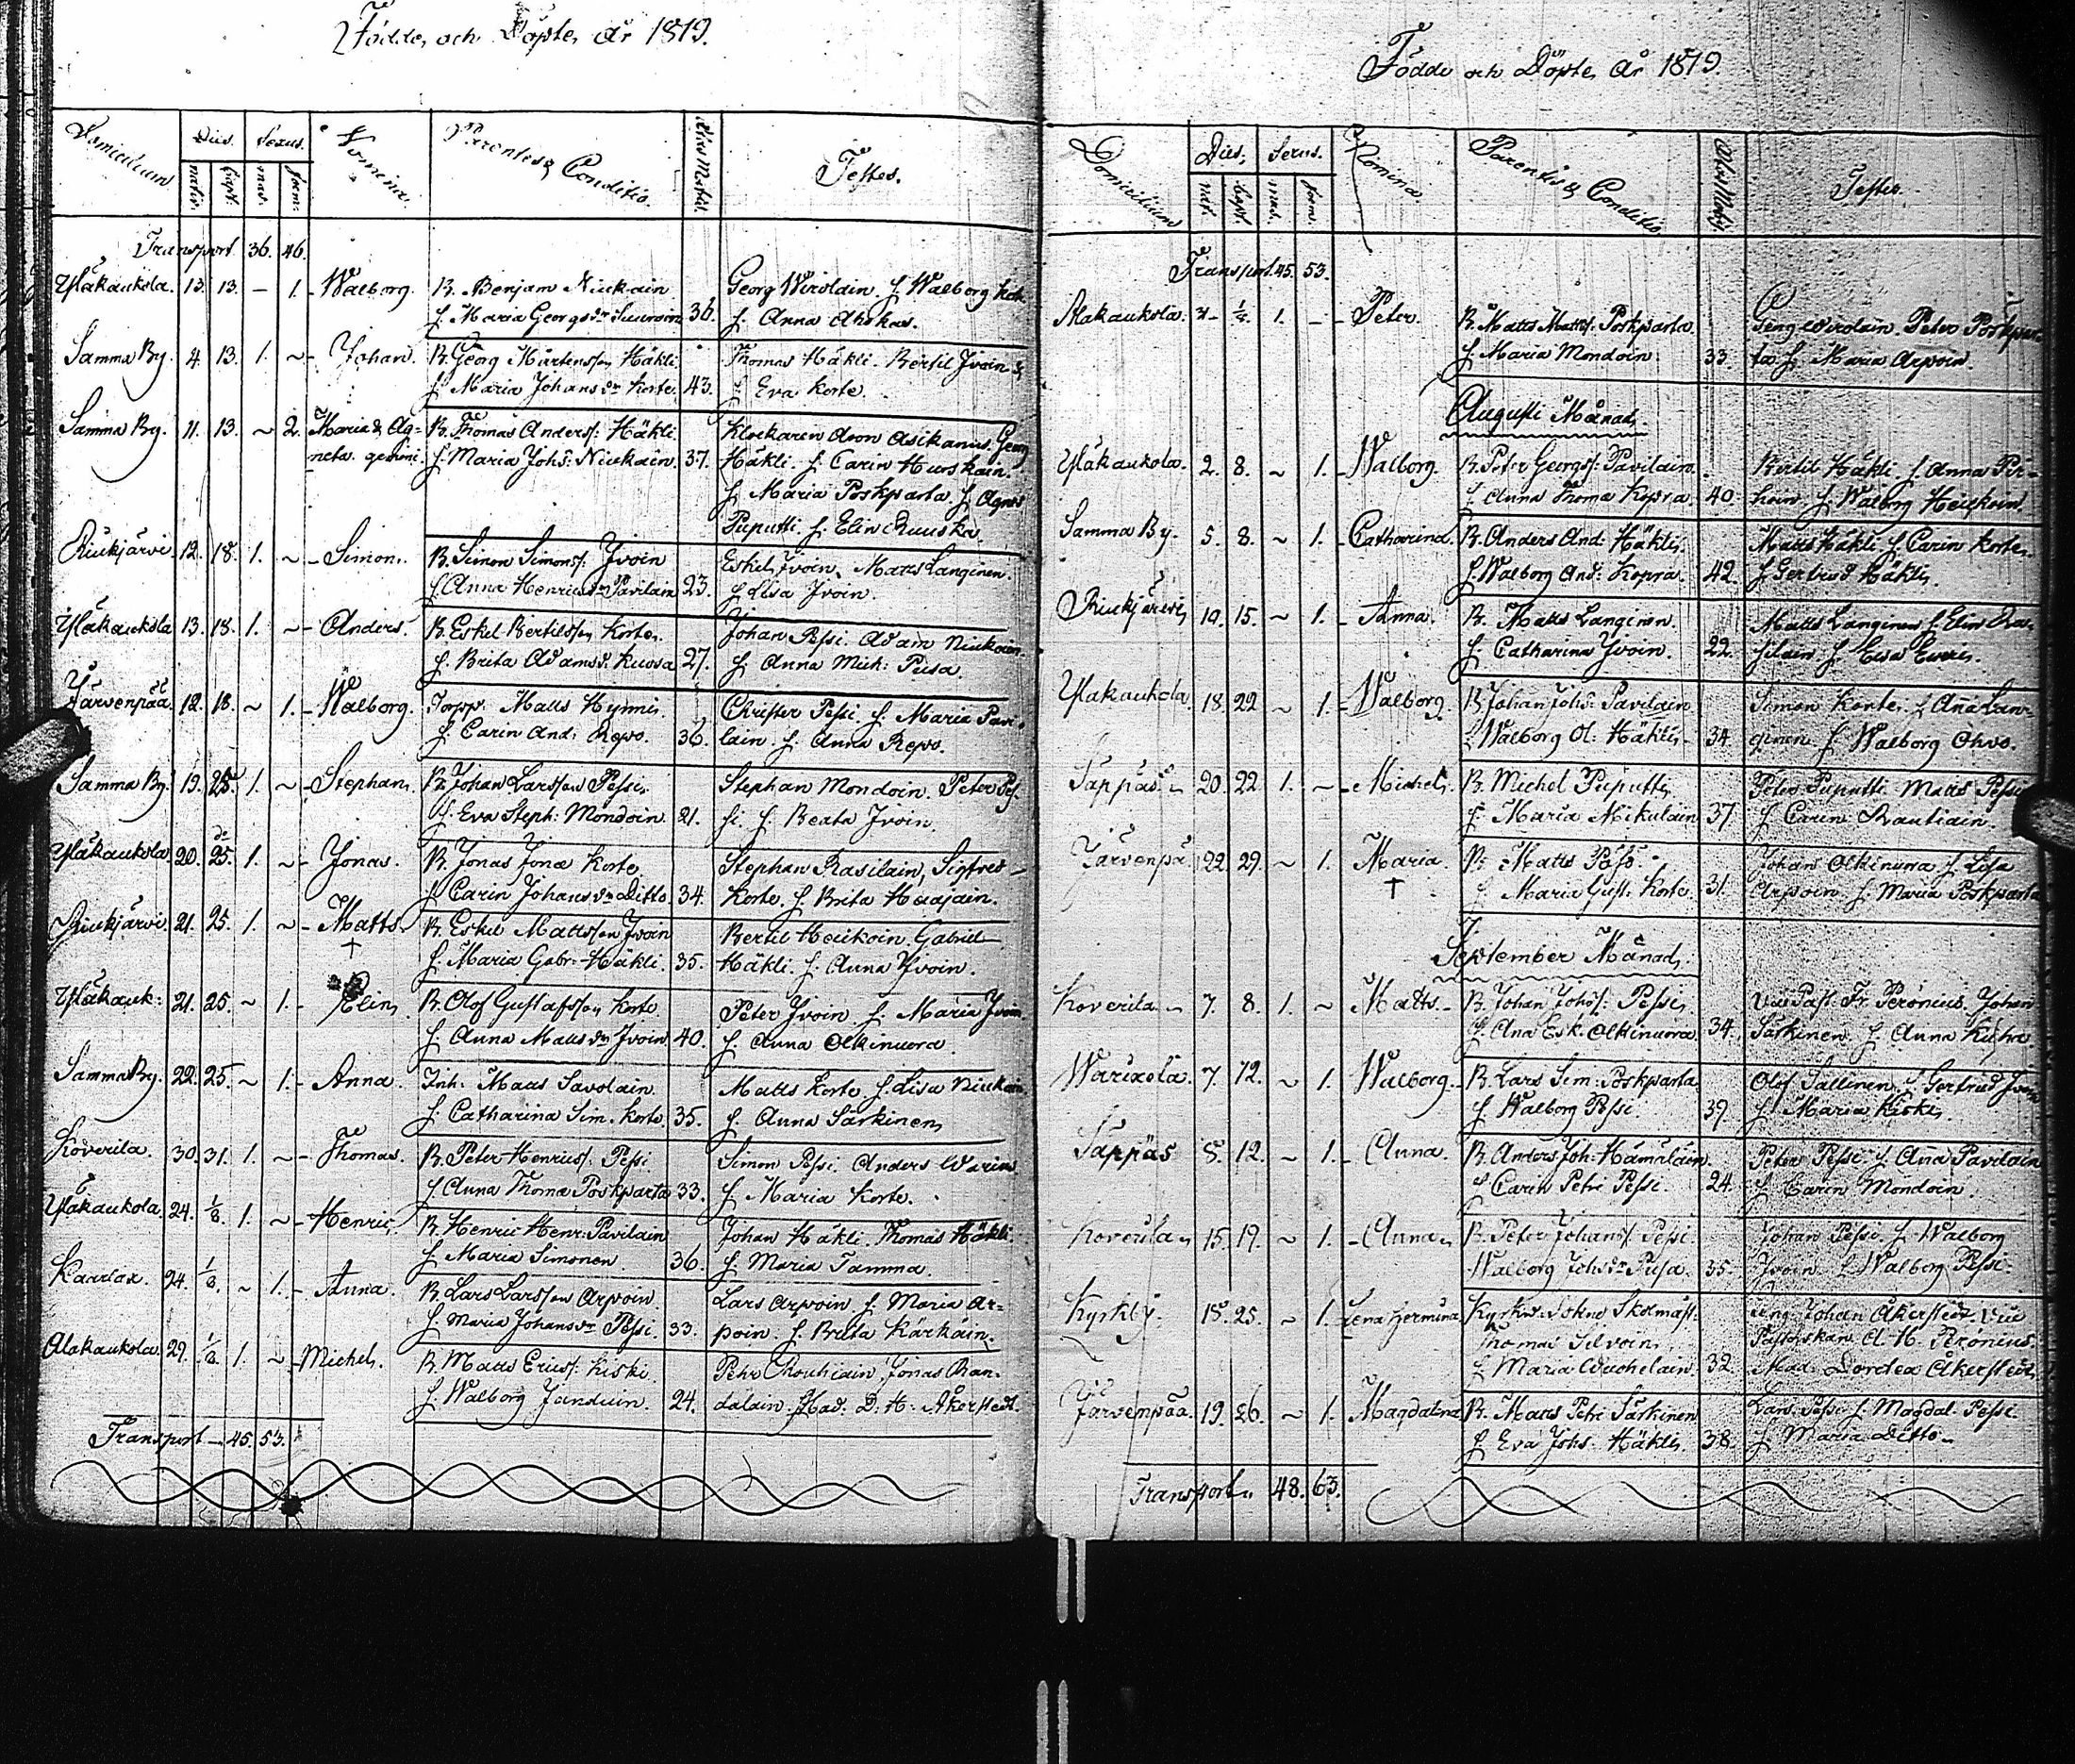 Födde och Döpte år 1819.
Domicilium Dies. Sexus. Nomina. Parentes & Conditio. Testes.
nativ. bapt. mas. foem.
Transport 36. 46.
Yläkaukola. 13. 13. – 1. Walborg. B. Benjam Niukain Georg Wirolain. h. Walborg
h. Maria Georgsdr Suursoin 36. h. Anna Ahokas.
Samma By. 4. 13. 1. ~ Johan. B. Georg Mårtensson Häkli. Thomas Häkli. Bertil Ivoin &
h. Maria Johansdr Korte. 43. h. Eva Korte.
Samma By. 11. 13. ~ 2. Maria & Ag= B. Thomas Anderss: Häkli. Klockaren Aron Asikanus. Georg
neta gemini. h. Maria Johs: Niukain. 37. Häkli. h. Carin Huuskain.
h. Maria Poskparta h. Agnes
Puputti h. Elin Ruuska.
Riukjärvi. 12. 18. 1. ~ Simon. B. Simon Simonss: Ivoin Eskel Ivoin, Matts Langinen.
h. Anna Henricsdr Pavilain 23. h. Lisa Ivoin.
Yläkaukola 13. 18. 1. ~ Anders. B. Eskel Bertilsson Korte. Johan Pessi. Adam Niukain.
h. Brita Adamsdr Kuosa 27. h. Anna Mich: Pusa.
Järvenpää. 12. 18. ~ 1. Walborg. Torpp. Matts Hynni. Christer Pessi. h. Maria Pavi=
h. Carin And: Repo. 36. lain. h. Anna Repo.
Samma By. 19. 25. 1. ~ Stephan. B. Johan Larsson Pessi. Stephan Mondoin. Peter Pes=
h. Eva Steph: Mondoin. 21. si. h. Beata Ivoin.
Yläkaukola 20. 25. 1. ~ Jonas. B. Jonas Jonæ Korte Stephan Rasilain, Sigfred
h. Carin Johansdr Ditto. 34. Korte. h. Brita Haajain.
Riukjärvi. 21. 25. 1. ~ Matts. B. Eskel Mattsson Ivoin Bertil Heikoin. Gabriel
† h. Maria Gabr: Häkli. 35. Häkli. h. Anna Ivoin.
Yläkauk: 21. 25. ~ 1. Elin. B. Olof Gustafsson Korte. Peter Ivoin h. Maria Ivoin
h. Anna Mattsdr Ivoin. 40. h. Anna Olkinuora
Samma By. 22. 25. ~ 1. Anna. Inh: Matts Savolain. Matts Korte. h. Lisa Niukain
h. Catharina Sim. Korte. 35. h. Anna Särkinen.
Koverila. 30. 31. 1. ~ Thomas. B. Peter Henricss: Pessi Simon Pessi. Anders Warius
h. Anna Thomæ Poskparta 33. h. Maria Korte.
Yläkaukola. 24. 1/8. 1. ~ Henric. B. Henric Henr: Pavilain Johan Häkli. Thomas Häkli.
h. Maria Simonen. 36. h. Maria Tamma.
Kaarlax. 24. 1/8. ~ 1. Anna. B. Lars Larsson Arpoin. Lars Arpoin. h. Maria Ar=
h. Maria Johansdr Pessi. 33. poin. h. Brita Kärkäin.
Alakaukola. 29. 1/8. 1. ~ Michel. B. Matts Ericss: Kiski. Petr Rouhiain. Jonas Ran=
h. Walborg Janduin. 24. dalain. Mad: D: H: Åkerstedt.
Transport 45. 53.
Födde och Döpte år 1819.
Domicilium Dies. Sexus. Nomina Parentes & Conditio Testes
nat. bapt. mas. foem.
Transport. 45. 53.
Alakaukola. 1. – Peter. B. Matts Matts: Poskparta. Georg Wirolain. Peter Poskpar
h. Maria Mondoin. 33. ta. h. Maria Arpoin.
Augusti Månad.
Yläkaukola. 2. 8. ~ 1. Walborg. B. Peter Georgs: Pavilain. Bertil Häkli h. Anna Pir=
h. Anna Thomæ Kopra 40. hoin h. Walborg Heikoin.
Samma By. 5. 8. ~ 1. Catharina. B. Anders And: Häkli. Matts Häkli h. Carin Korte.
h. Walborg And: Kopra. 42. h. Gertrud Häkli.
Riukjärvi. 10. 15. ~ 1. Anna. B. Matts Langinen. Matts Langinen h. Elin Ra=
h. Catharina Ivoin. 22. silain. h. Eva
Yläkaukola 18. 22. ~ 1. Walborg. B. Johan Johs: Pavilain Simon Korte. h. Anna Lan=
h. Walborg Ol: Häkli. 34. ginen. h. Walborg Ohvo.
Sappäs. 20. 22. 1. ~ Michel. B. Michel Puputti. Peter Puputti Matts Pessi
h. Maria Mikulain 37. h. Carin Rautiain.
Järvenpä 22. 29. ~ 1. Maria. B. Matts Johan Olkinuora h. Lisa
† h. Maria Gust. Korte. 31. Arpoin. h. Maria Poskparta
September Månad.
Koverila 7. 8. 1. ~ Matts. B. Johan Johss: Pessi. Vice Past. Fr. Peronius. Johan
h. Anna Esk. Olkinuora 34. Särkinen. h. Anna
Warikola. 7. 12. ~ 1. Walborg. B. Lars Sim: Poskparta. Olof Sallinen. h. Gertrud Ivoin
h. Walborg Pessi. 39. h. Maria Kiski.
Sappäs 8. 12. ~ 1. Anna. B. Anders Joh: Hämäläin. Peter Pessi. h. Anna Pavilain
h. Carin Petri Pessi. 24. h. Carin Mondoin.
Koverila 15. 19. ~ 1. Anna. B. Peter Johans: Pessi. Johan Pessi. h. Walborg
Walborg Johsdr Pusa. 35. Ivoin. h. Walborg Pessi.
Kyrkby. 18. 25. ~ 1. Lena Hermina. Kyrkw. Sokne Skolmäst: ung. Johan Åkerstedt. Vice
Thomas Silvoin. Pastorskan A. H. Peronius.
h. Maria Wuohelain. 32. Mad. Dordea Åkerstedt.
Järvenpää. 19. 26. ~ 1. Magdalena B. Matts Petri Särkinen Lars Pessi. h. Magdal. Pessi.
h. Eva Johs: Häkli. 38. h. Maria Ditto.
Transport. 48. 63.